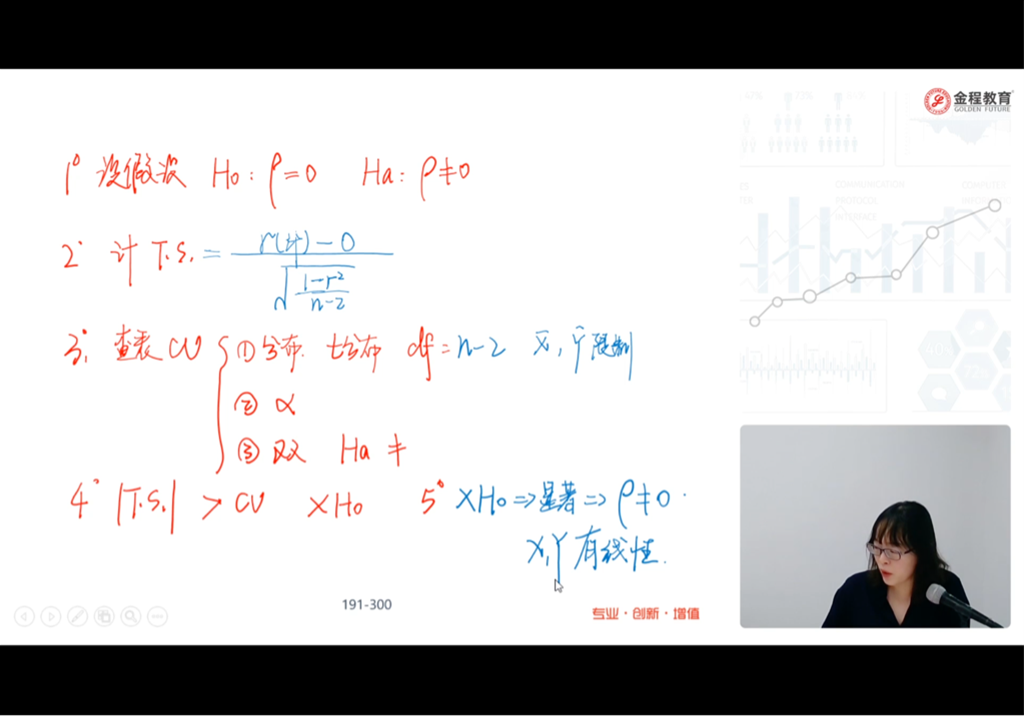 金程教育
GOLDEN FUTURE
1° 设假设 H₀: ρ=0 Ha: ρ≠0
2° 计 T.S. = (r(计)-0) / √((1-r²)/(n-2))
3°. 查表 CV ① 分布. t分布 df=n-2 X̄, Ȳ 限制
② α
③ 双 Ha ≠
4° |T.S.| > CV ×H₀ 5° ×H₀ ⇒ 显著 ⇒ ρ≠0.
X,Y 有线性.
191-300
专业·创新·增值